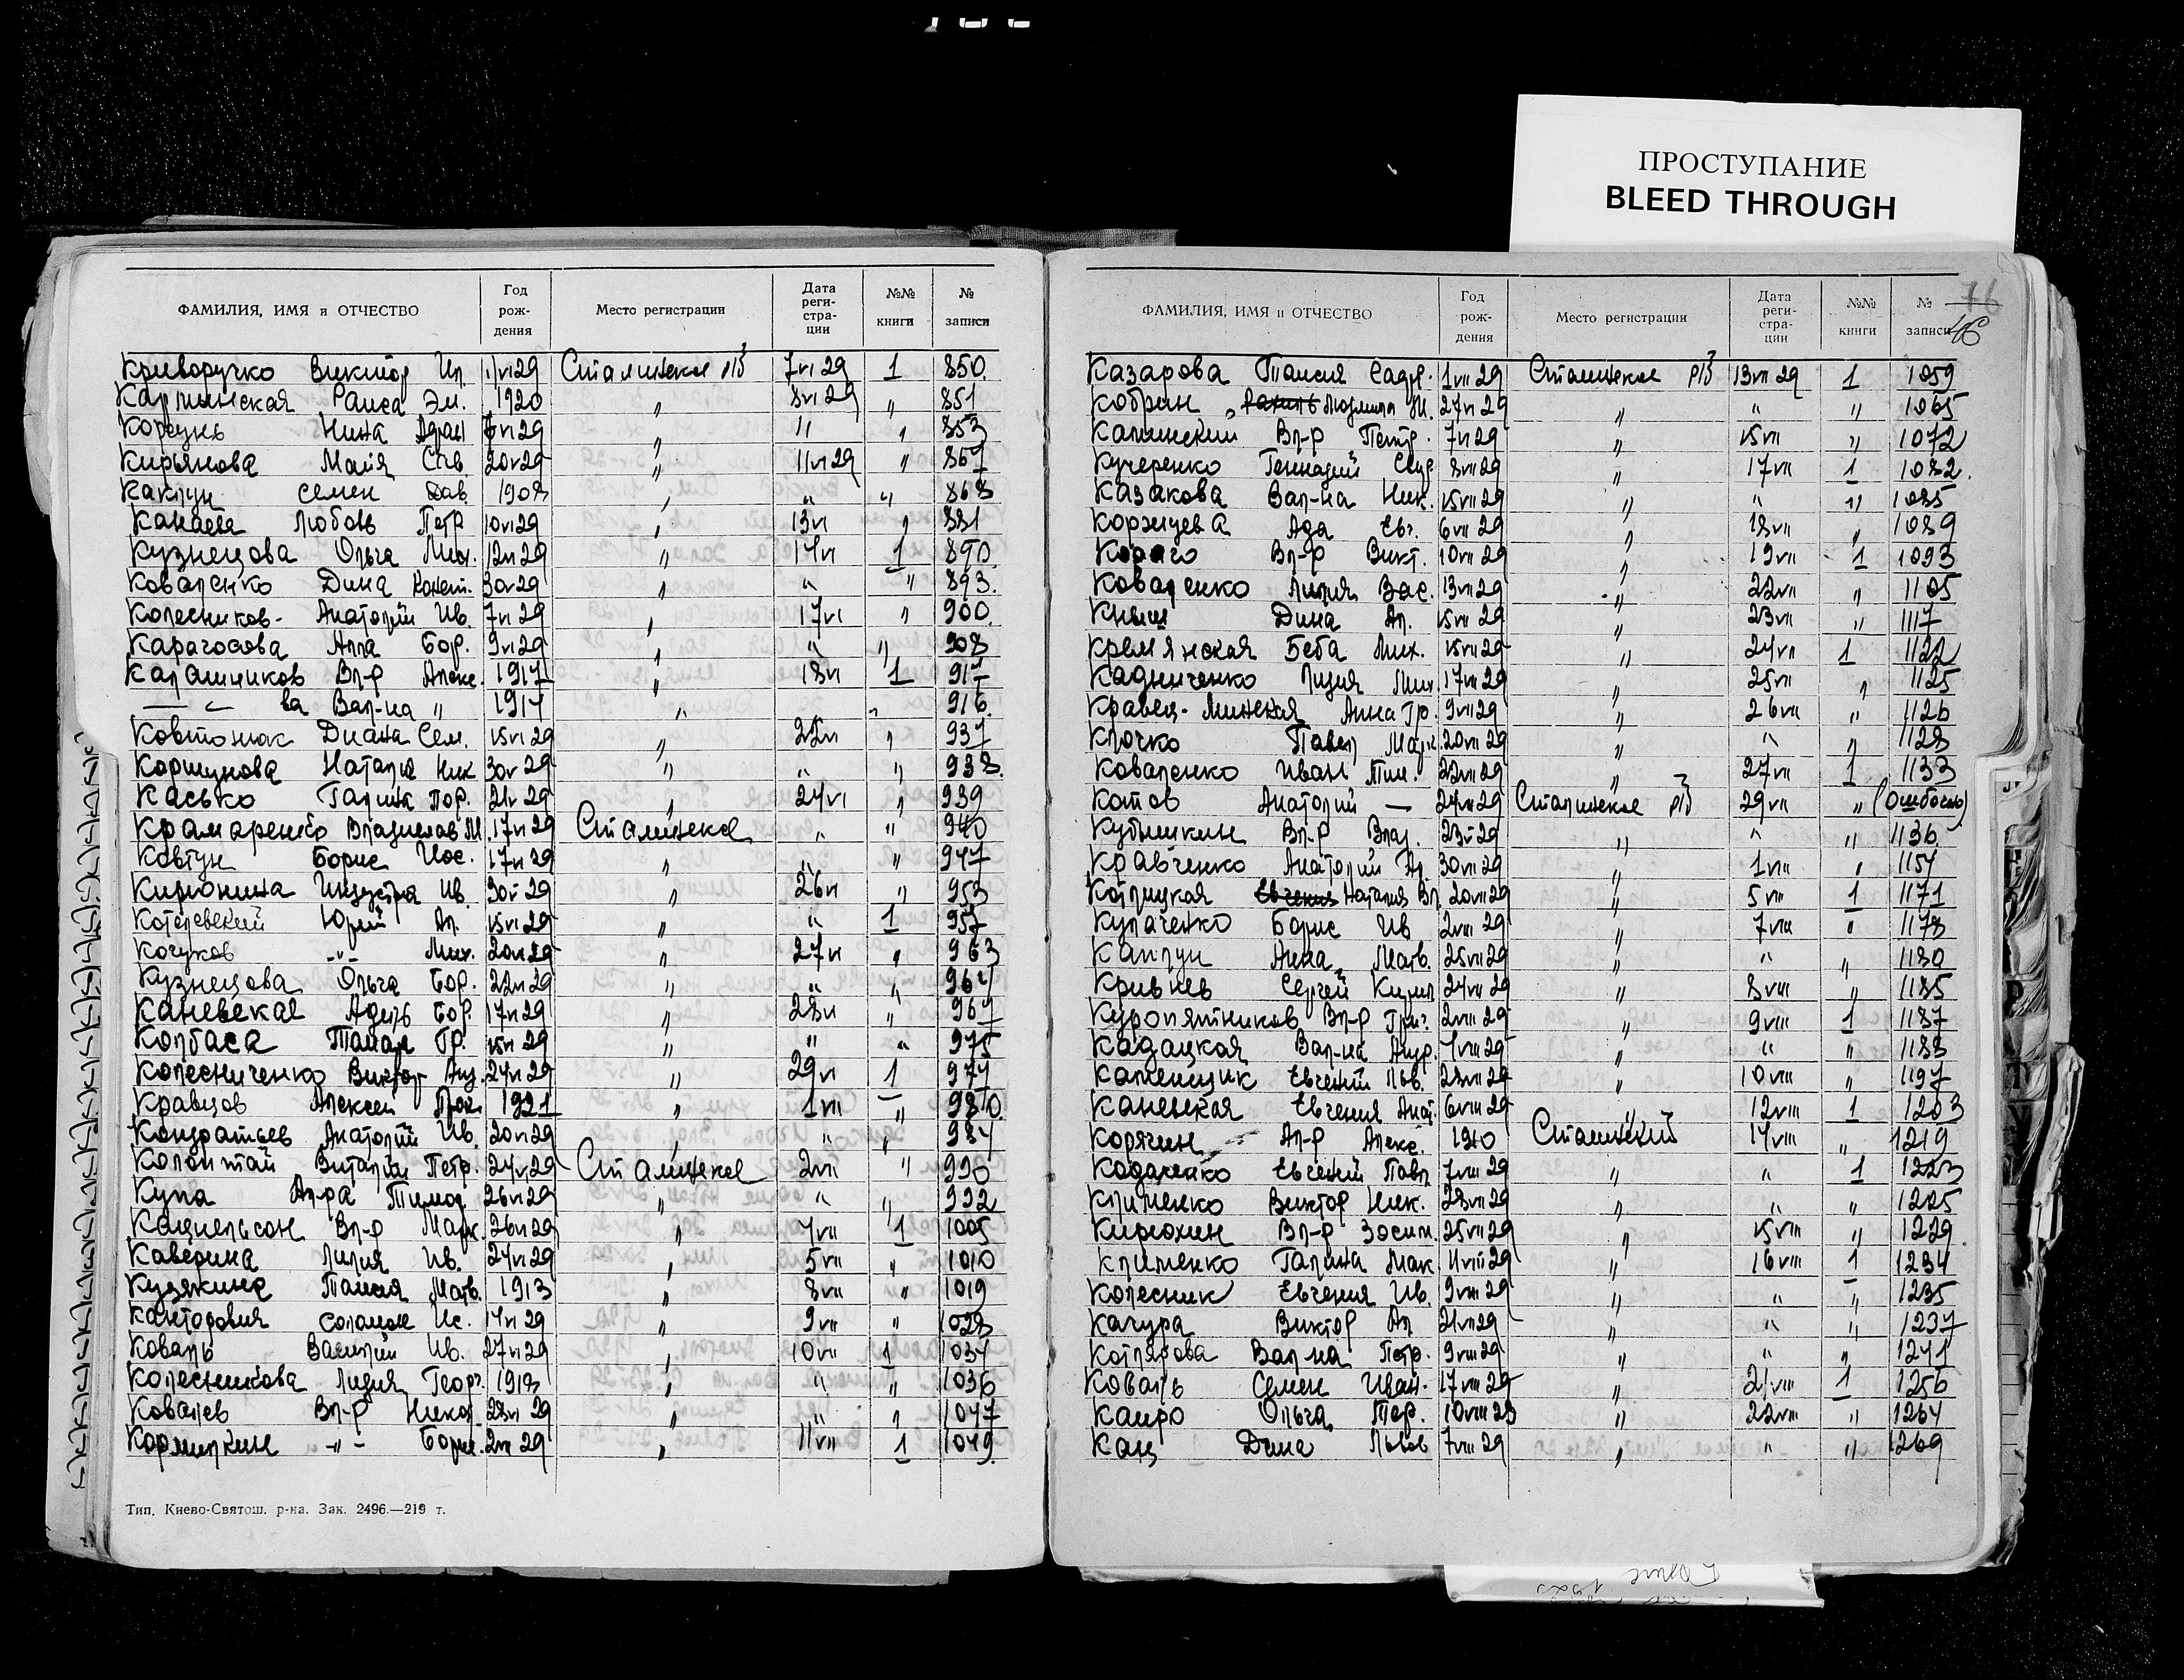 ПРОСТУПАНИЕ
BLEED THROUGH
ФАМИЛИЯ, ИМЯ и ОТЧЕСТВО Год рождения Место регистрации Дата реги-стра-ции №№ книги № записи
Криворучко Виктор Ил. 1vi29 Сталинское р/з 7vi29 1 850
Карпинская Раиса Эм. 1920 " 8vi29 " 851
Корсунь Нина Адам 7vi29 " " " 853
Кирьянова Майя 20v29 " 11vi29 " 867
Каплун Семен Дав. 1908 " " " 868
Канаева Любовь Петр 10vi29 " 13vi " 881
Кузнецова Ольга Мих. 12vi29 " 14vi 1 890
Коваленко Дина Конст. 30v29 " " " 893
Колесников- Анатолий Ив. 7vi29 " 17vi " 900
Карагосова Алла Бор. 9vi29 " " " 908
Калашников Вл-р Алекс. 1917 " 18vi 1 917
— " — ва Вал-на " 1914 " " 916
Ковтонюк Диана Сем. 15vi29 " 22vi " 937
Коршунова Наталья Ник 30v29 " " " 938
Касько Галина Пор. 21v29 " 24vi " 939
Крамаренко Владислав М. 17vi29 Сталинское " " 940
Ковтун Борис Иос. 17vi29 " " " 947
Кирюнина Индустра Ив. 30v29 " 26vi " 953
Котелевский Юрий Ал. 15vi29 " " 1 957
Кочуков -"- Мих. 20vi29 " 27vi " 963
Кузнецова Ольга Бор. 22vi29 " " " 964
Каневская Адель Бор. 17vi29 " 28vi " 967
Колбаса Тамар Гр. 15vi29 " " " 975
Колесниченко Виктор Анд. 24vi29 " 29vi 1 977
Кравцов Алексей Прок. 1921 " 1vii " 980
Кондратьев Анатолий Ив. 20vi29 " " " 984
Колонтай Виталий Петр. 24vi29 Сталинское 2vii " 990
Кула Ал-ра Тимоф 26vi29 " " " 992
Кацнельсон Вл-р Марк. 26vi29 " 4vii 1 1005
Каверина Лилия Ив. 24vi29 " 5vii " 1010
Кузякина Таисия Матв. 1913 " 8vii " 1019
Канторович Соломон Ис. 14vi29 " 9vii " 1028
Коваль Василий Ив. 27vi29 " 10vii 1 1034
Колесникова Лидия Георг. 1918 " " " 1036
Ковалев Вл-р Никол 28vi29 " " " 1047
Кормилкин -"- Борис. 2vii29 " 11vii 1 1049
Тип. Киево-Святош. р-на. Зак. 2496.—219 т.
76
46
ФАМИЛИЯ, ИМЯ и ОТЧЕСТВО Год рож-дения Место регистрации Дата реги-стра-ции №№ книги № записи
Казарова Таисия 1vii29 Сталинское р/з 13vii29 1 1059
Кобрин Рахиль Людмила М. 27vi29 " " " 1065
Калинский Вл-р Петр. 7vi29 " 15vii " 1072
Кучеренко Геннадий 8vii29 " 17vii 1 1082
Казакова Вал-на Ник. 15vii29 " " " 1085
Коржуева Ада Евг. 6vii29 " 18vii " 1089
Кораго Вл-р Викт. 10vii29 " 19vii 1 1093
Коваренко Лилия Вас. 13vii29 " 22vii " 1105
Кныш Дина Ал. 15vii29 " 23vii " 1117
Кремянская Беба Мих. 15vii29 " 24vii 1 1122
Кадниченко Лидия Мих. 17vii29 " 25vii " 1125
Кравец-Минская Анна Гр. 9vii29 " 26vii " 1126
Клочко Павел Марк. 20vii29 " " " 1128
Коваленко Иван Тим. 22vii29 " 27vii 1 1133
Котов Анатолий — 24vii29 Сталинское р/з 29vii " (Ошбосно)
Кубышкин Вл-р Влад. 23vi29 " " " 1136
Кравченко Анатолий Ал. 30vii29 " 1viii " 1154
Котлицкая Евгения Наталия Вл. 20vii29 " 5viii 1 1171
Купаченко Борис Ив 2viii29 " 7viii " 1178
Каплун Анна Матв. 25vii29 " " " 1180
Кривнев Сергей Кирил 24vii29 " 8viii " 1185
Куропятников Вл-р Григ. 2viii29 " 9viii 1 1187
Кадацкая Вал-на Андр. 4viii29 " " " 1188
Каменщик Евгений Льв. 28vii29 " 10viii " 1197
Каневская Евгения Анат. 6viii29 " 12viii 1 1203
Корягин Ал-р Алекс. 1910 Сталинский 14viii " 1219
Кодаченко Евгений Павл 7viii29 " " 1 1223
Клименко Виктор Ник. 28vii29 " " " 1225
Кирюхин Вл-р Зосим. 25vii29 " 15viii " 1229
Клименко Галина Мак 11viii29 " 16viii 1 1234
Колесник Евгения Ив. 9viii29 " " " 1235
Качура Виктор Ал 21vii29 " " " 1237
Котлярова Вал-на Петр. 9viii29 " " " 1241
Коваль Семен Иван. 17viii29 " 21viii 1 1256
Каиро Ольга Тер. 10viii28 " 22viii " 1264
Кац Дина Львов 7viii29 " " " 1269